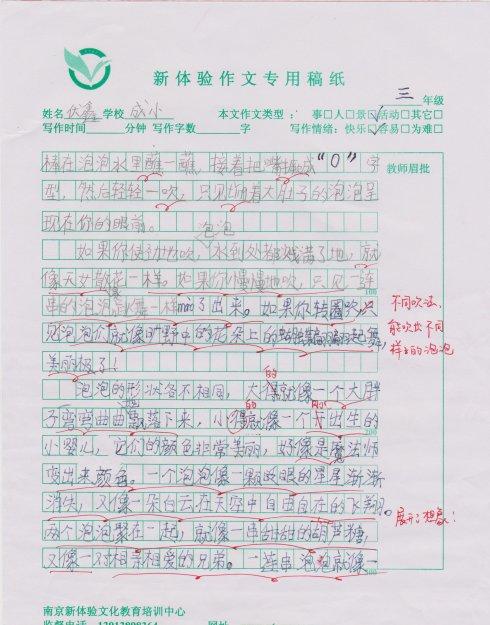 新体验作文专用稿纸
三 年级
姓名 伏鑫 学校 成小 本文作文类型： 事□人□景□活动□其它□
写作时间 分钟 写作字数 字 写作情绪：快乐□容易□为难□
棒在泡泡水里蘸一蘸，接着把嘴 成“O”字
教师眉批
型，然后轻轻一吹，只见 着大肚子的泡泡呈
现在你的眼前。
泡泡
如果你使劲地吹， 到处都 满了地，就
像天女散花一样。如果你慢慢地吹，只见一连
串的泡泡 一样 了出来。如果你转圈吹，只
见泡泡们就像 野中的花朵上的 翩翩起舞，
美丽极了！
不同吹法，
能吹出不同
样子的泡泡
泡泡的形状各不相同，大的就像一个大胖
子弯弯曲曲地飘落下来，小的就像一个刚出生的
小婴儿，它们的颜色非常美丽，好像是魔法师
变出来颜色。一个泡泡像一颗 眼的星星渐渐
消失，又像一朵白云在天空中自由自在的飞翔。
展开了想象！
两个泡泡聚在一起，就像一串甜甜的葫芦糖，
又像一对相亲相爱的兄弟。一连串泡泡就像一
100
200
300
南京新体验文化教育培训中心